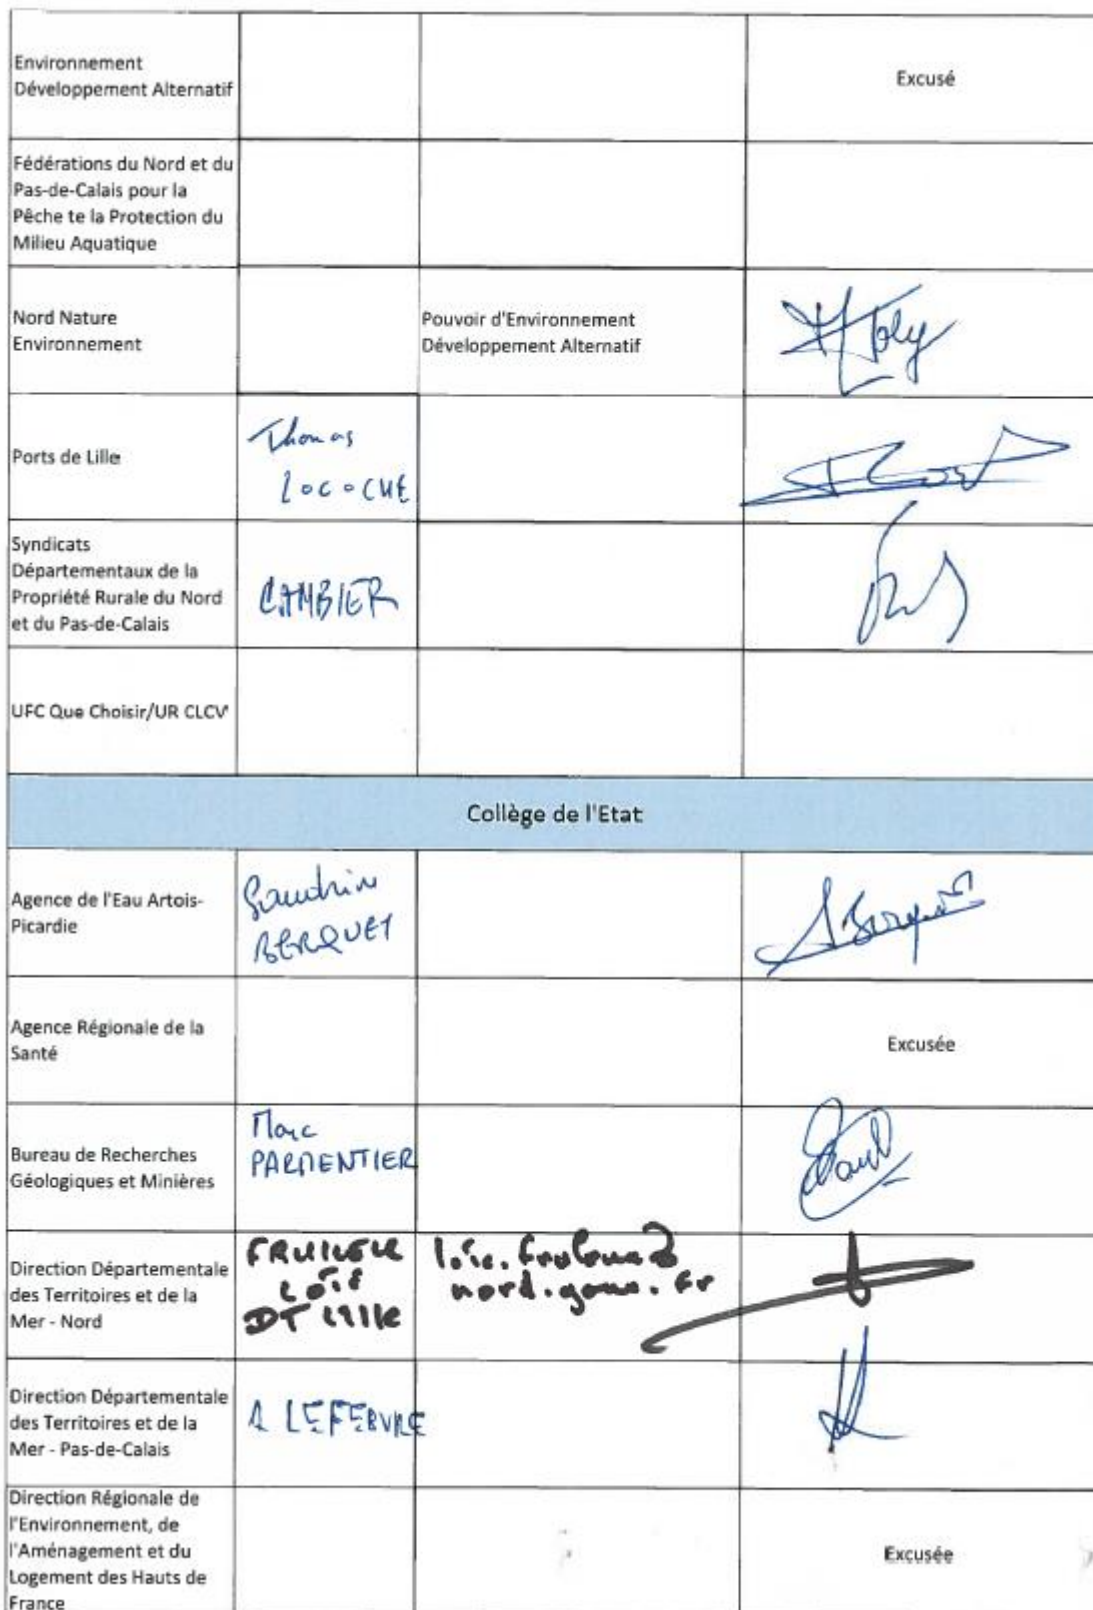 Environnement
Développement Alternatif
Excusé
Fédérations du Nord et du
Pas-de-Calais pour la
Pêche te la Protection du
Milieu Aquatique
Nord Nature
Environnement
Pouvoir d'Environnement
Développement Alternatif
Ports de Lille
Thomas
LOCOCHE
Syndicats
Départementaux de la
Propriété Rurale du Nord
et du Pas-de-Calais
CAMBIER
UFC Que Choisir/UR CLCV
Collège de l'Etat
Agence de l'Eau Artois-
Picardie
Sandrine
BERQUET
Agence Régionale de la
Santé
Excusée
Bureau de Recherches
Géologiques et Minières
Marc
PARMENTIER
Direction Départementale
des Territoires et de la
Mer - Nord
DT
Direction Départementale
des Territoires et de la
Mer - Pas-de-Calais
A LEFEBVRE
Direction Régionale de
l'Environnement, de
l'Aménagement et du
Logement des Hauts de
France
Excusée